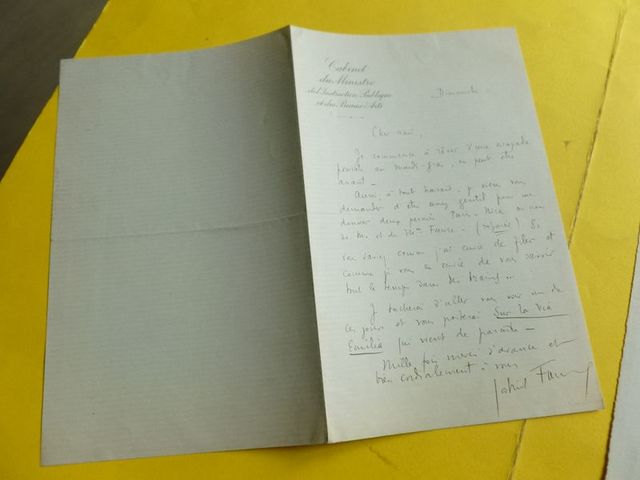 Cabinet
du Ministre
de l'Instruction Publique
et des Beaux-Arts
Dimanche
Cher ami,
Je commence à rêver d'une escapade
au mardi-gras, ou peut être
avant –
Aussi, à tout hasard, je viens vous
demander d'être assez gentil pour me
donner deux permis Paris-Nice au nom
de M. et de Mme Faure – 
vous saviez comme j'ai envie de filer et
comme j'en ai envie de vous savoir
tout le temps dans les trains...
Je tâcherai d'aller vous voir un de
ces jours et vous porterai Sur la Via
Emilia qui vient de paraître –
Mille fois merci d'avance et
bien cordialement à vous
Gabriel Faure